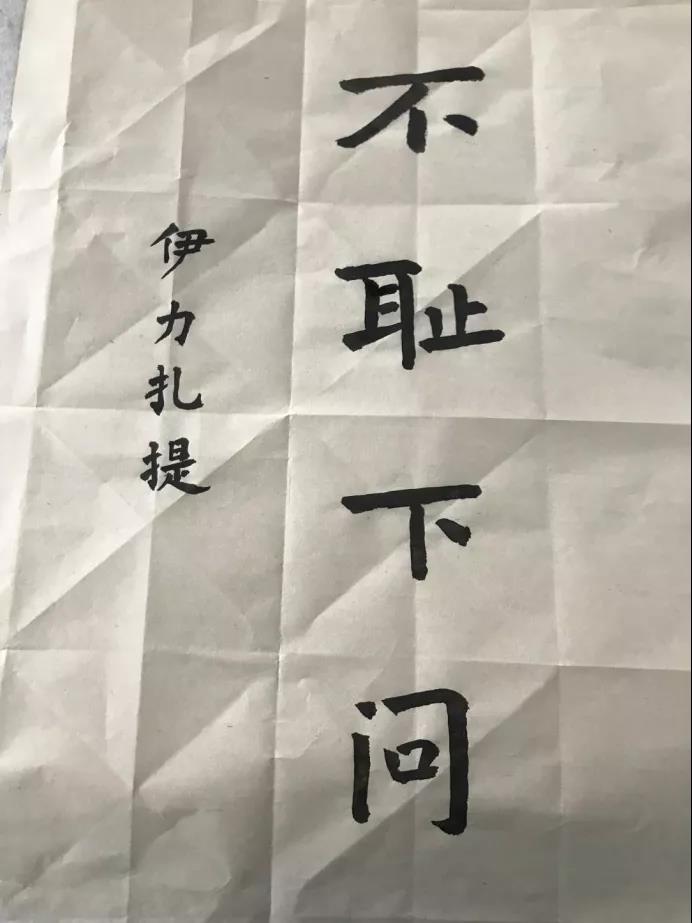 不耻下问
伊力扎提